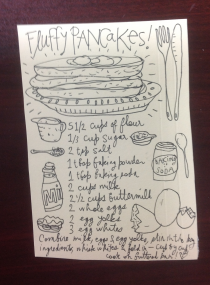 Fluffy PANCAKES!
5 1/2 cups of flour
cup sugar
2 tsp salt
1 tbsp baking powder
1 tbsp baking soda
2 cups milk
2 1/2 cups buttermilk
2 whole eggs
2 egg yolks
2 egg whites
BAKING
SODA
MILK
Combine milk, eggs & egg yolks, then stir by dry
ingredients, whisk whites & fold in cup by cup
cook on buttered